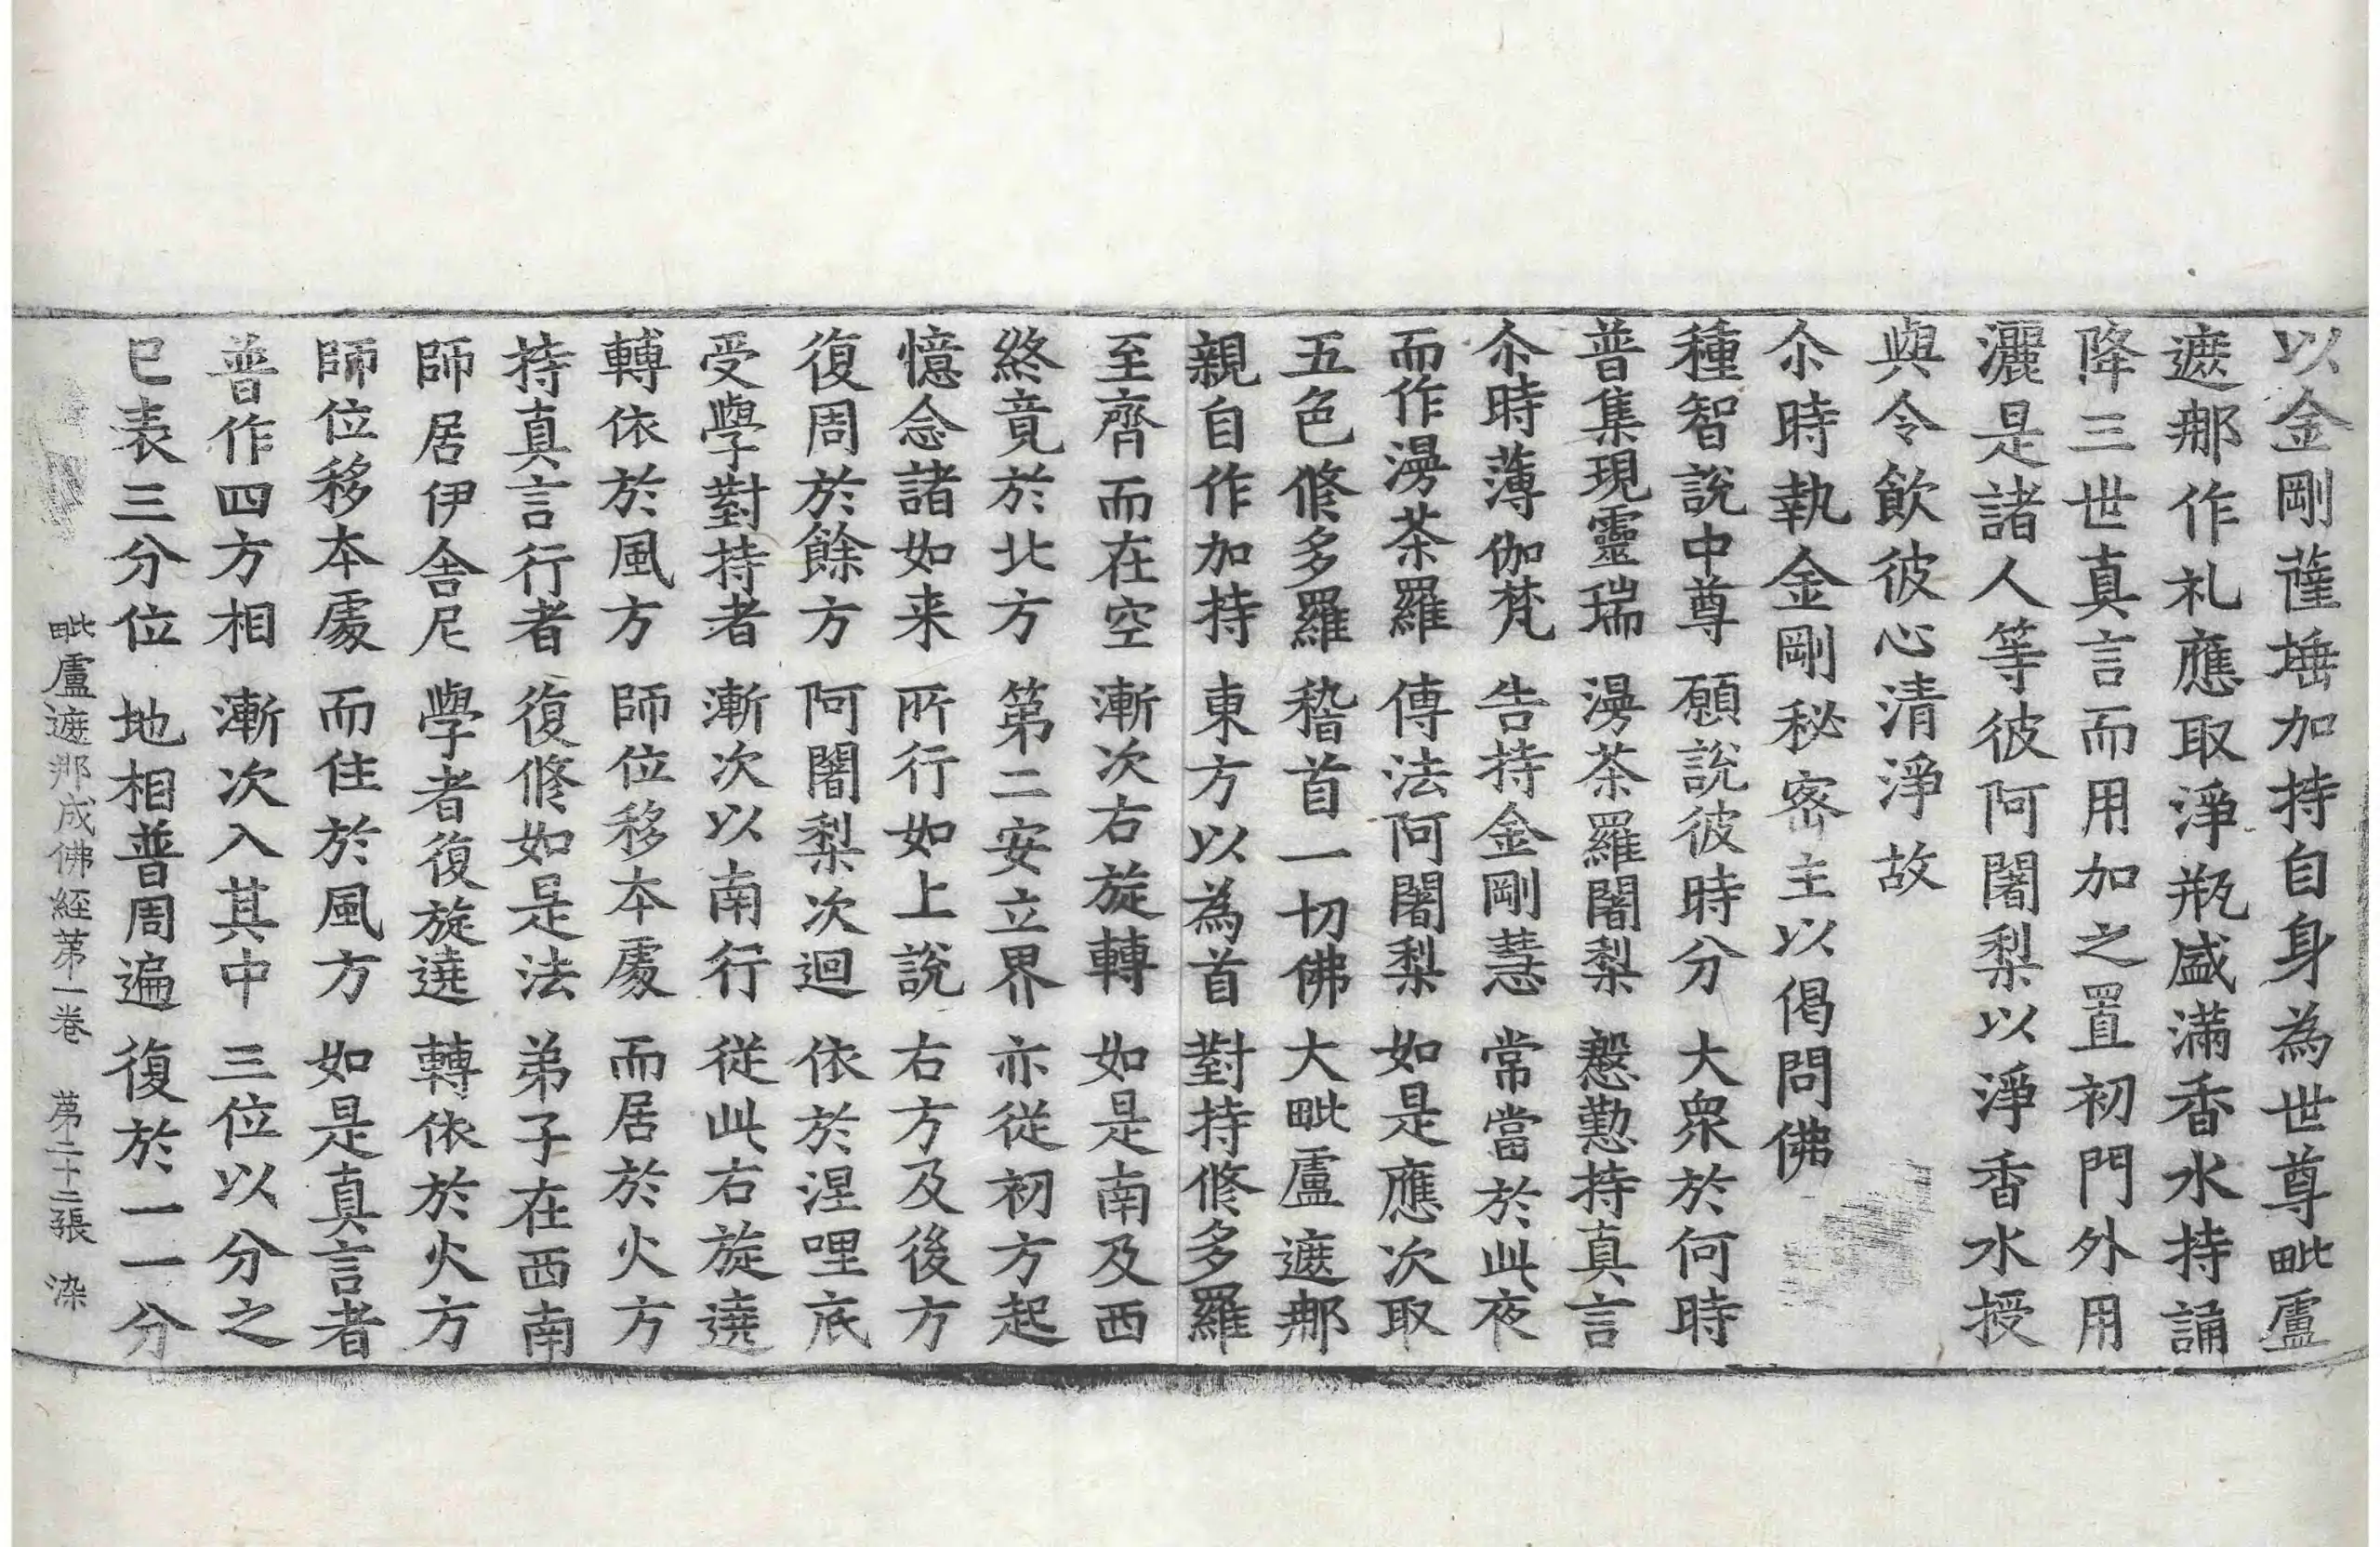 以金剛薩埵加持自身為世尊毗盧
遮那作礼應取淨瓶盛滿香水持誦
降三世真言而用加之置初門外用
灑是諸人等彼阿闍梨以淨香水授
與令飲彼心清淨故
尒時執金剛秘密主以偈問佛
種智說中尊　願說彼時分　大衆於何時
普集現靈瑞　漫茶羅闍梨　慇懃持真言
尒時薄伽梵　告持金剛慧　常當於此夜
而作漫茶羅　傳法阿闍梨　如是應次取
五色修多羅　稽首一切佛　大毗盧遮那
親自作加持　東方以為首　對持修多羅
至齊而在空　漸次右旋轉　如是南及西
終竟於北方　第二安立界　亦從初方起
憶念諸如来　所行如上說　右方及後方
復周於餘方　阿闍梨次迴　依於涅哩底
受學對持者　漸次以南行　從此右旋遶
轉依於風方　師位移本處　而居於火方
持真言行者　復修如是法　弟子在西南
師居伊舎尼　學者復旋遶　轉依於火方
師位移本處　而住於風方　如是真言者
普作四方相　漸次入其中　三位以分之
已表三分位　地相普周遍　復於一一分
毗盧遮那成佛經第一卷　第二十二張　染